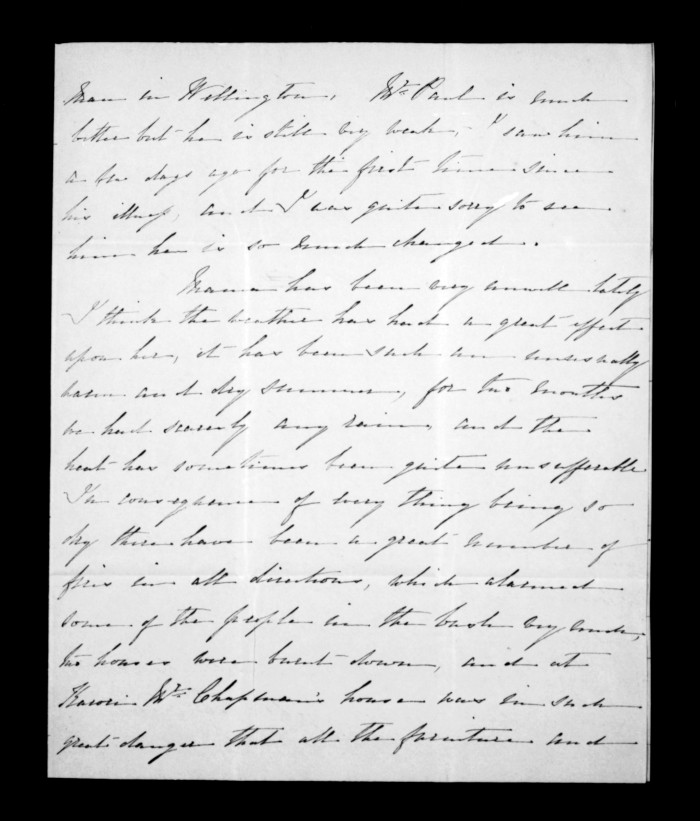 man in Wellington, Mr. Paul is much
better but he is still very weak, I saw him
a few days ago for the first time since
his illness, and I was quite sorry to see
him he is so much changed.
Mama has been very unwell lately
I think the weather has had a great effect
upon her, it has been such an unusually
warm and dry summer, for two months
we had scarcely any rain, and the
heat has sometimes been quite unsufferable
In consequence of every thing being so
dry there have been a great number of
fires in all directions, which alarmed
some of the people in the bush very much,
two houses were burnt down, and at
Karori Mrs. Chapman's house was in such
great danger that all the furniture and